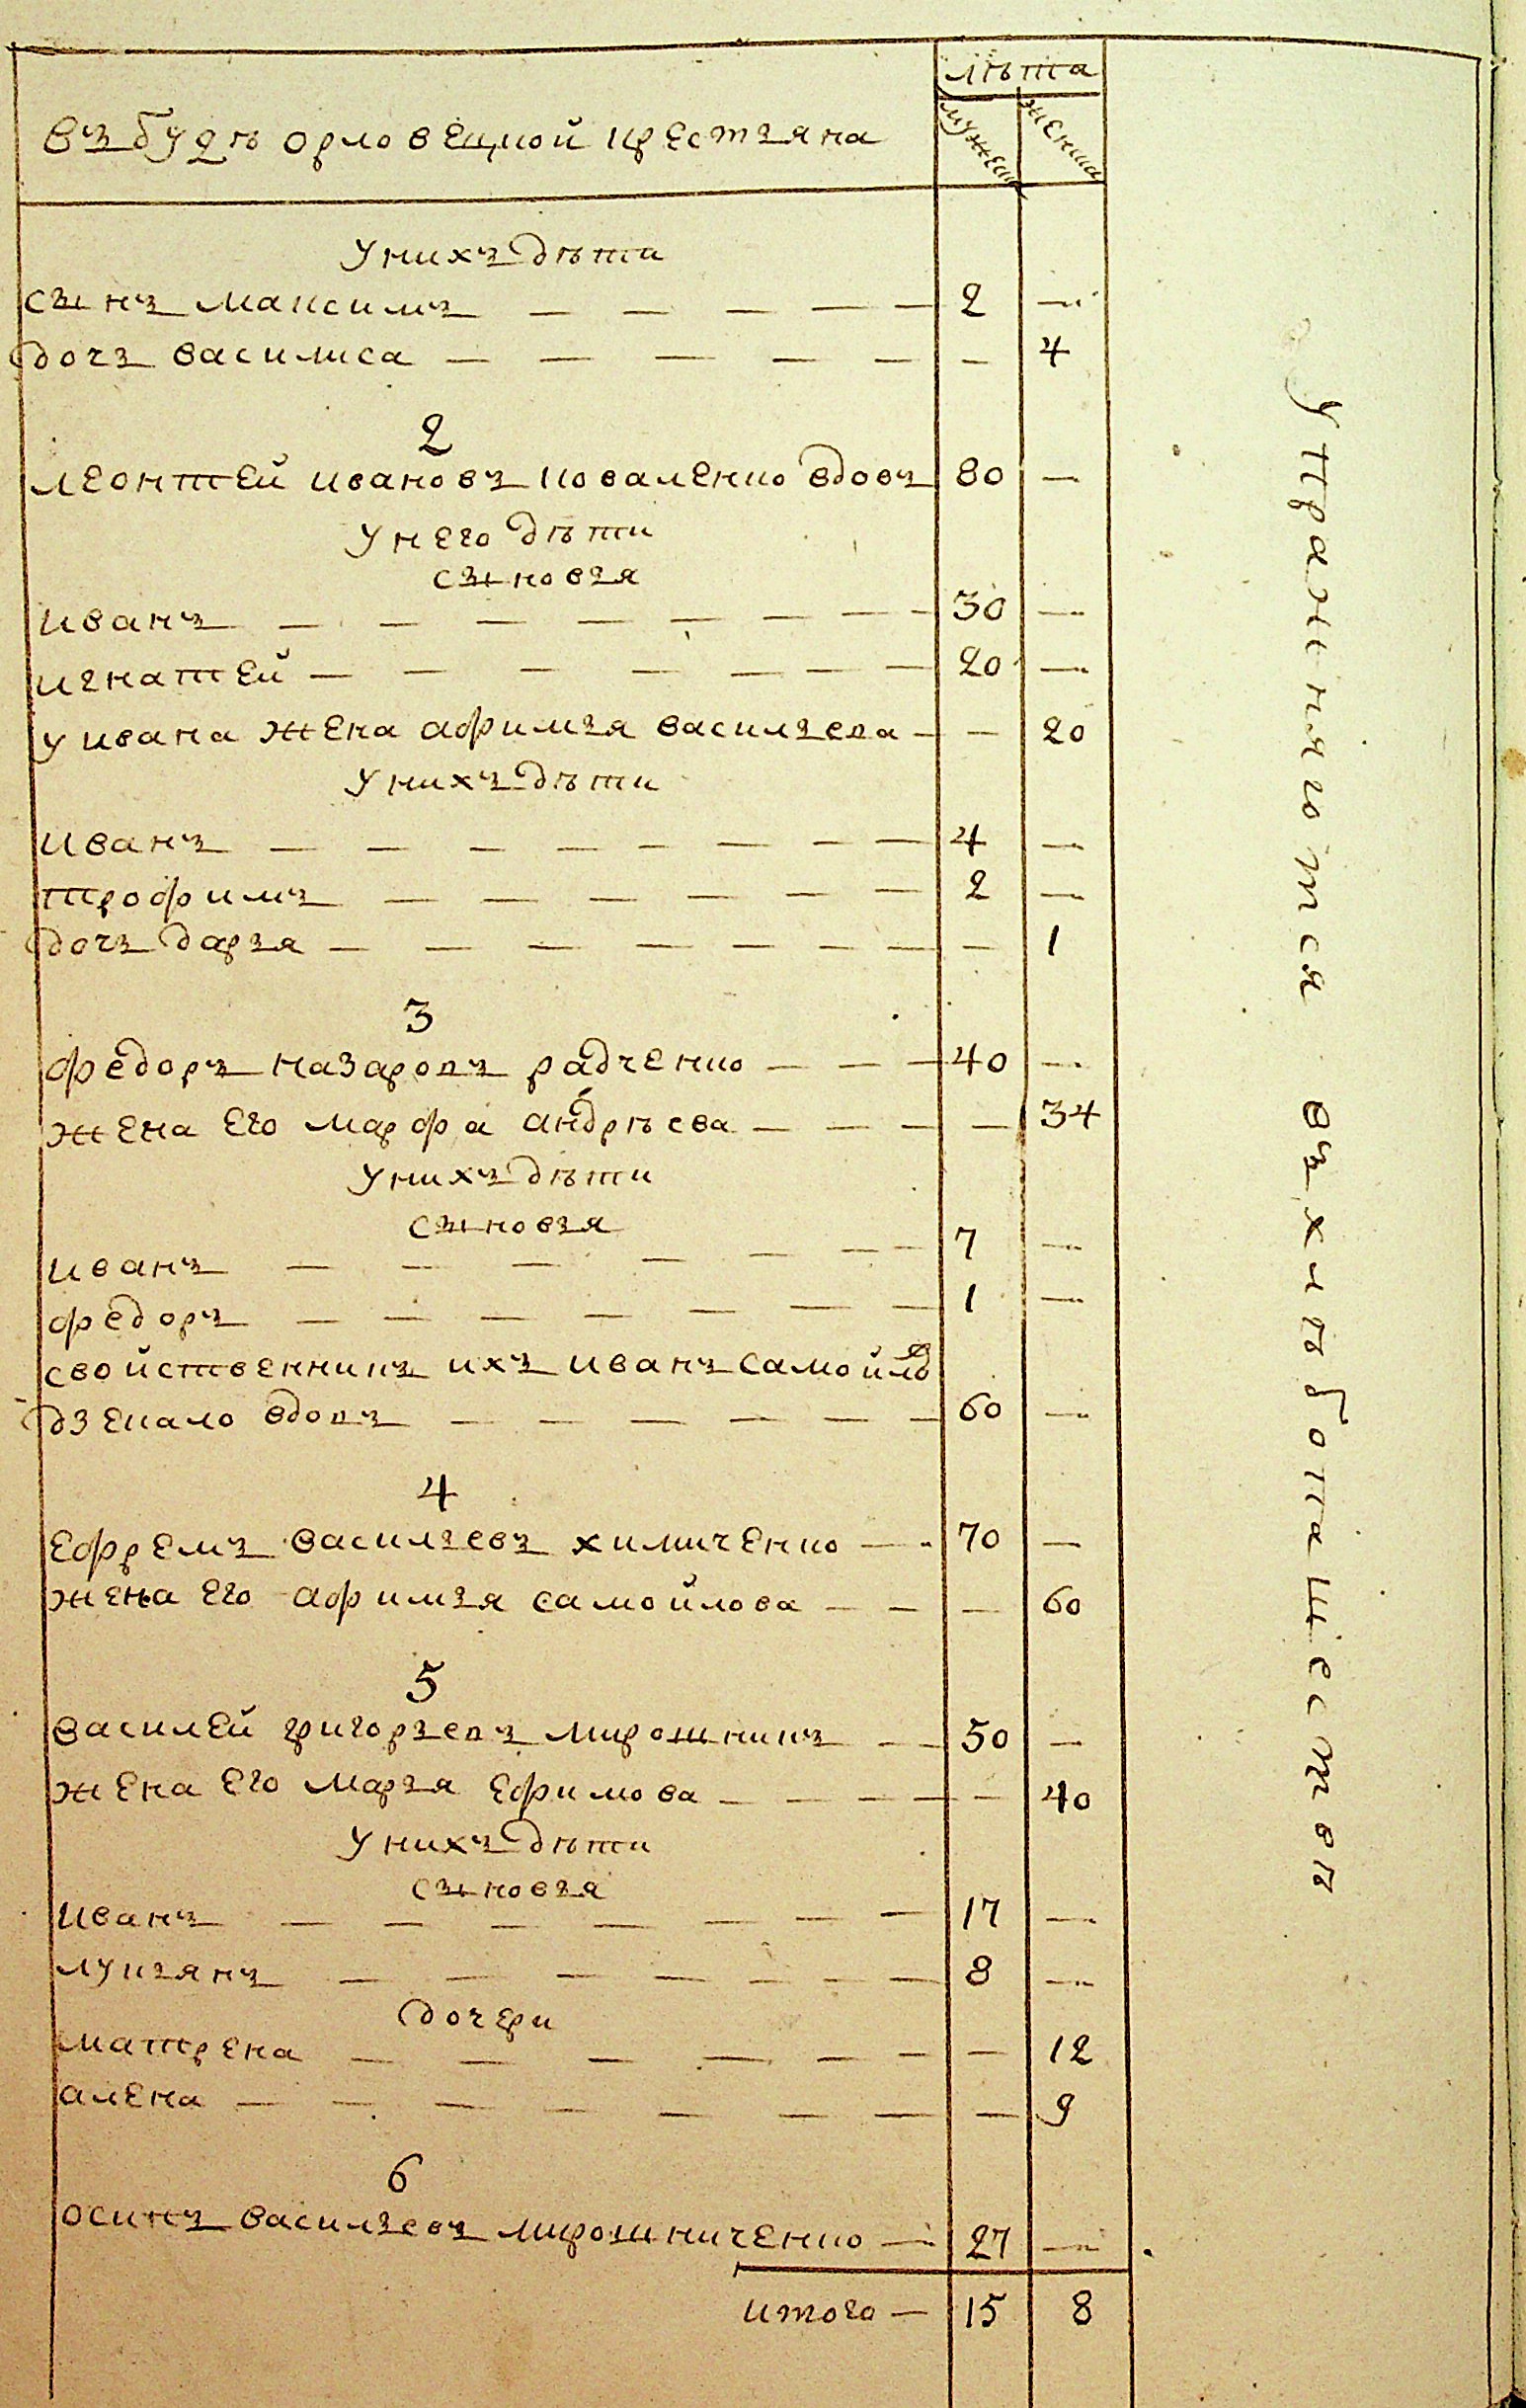 лѣта
мужеска женска
въ будѣ орловецкой крестьяна
У нихъ дѣти
сынъ максимъ — — — — — 2 —
дочь василиса — — — — — — 4
2
леонтей ивановъ коваленко вдовъ 80 —
У него дѣти
сыновья
иванъ — — — — — — — 30 —
игнатей — — — — — — 20 —
у ивана жена афимья васильева — — 20
У нихъ дѣти
иванъ — — — — — — — 4 —
трофимъ — — — — — — 2 —
дочь дарья — — — — — — — 1
3
федоръ назаровъ радченко — — — 40 —
жена его марфа андрѣева — — — — 34
У нихъ дѣти
сыновья
иванъ — — — — — — 7 —
федоръ — — — — — — — 1 —
свойственникъ ихъ иванъ самойловъ
дзекало вдовъ — — — — — — 60 —
4
ефремъ васильевъ химиченко — — 70 —
жена его афимья самойлова — — — 60
5
василей григорьевъ мирошникъ — — 50 —
жена его марья ефимова — — — — — 40
У нихъ дѣти
сыновья
иванъ — — — — — — — 17 —
лукьянъ — — — — — — — 8 —
дочери
матрена — — — — — — — 12
алена — — — — — — — — 9
6
осипъ васильевъ мирошниченко — 27 —
итого — 15 8
упражняются въ хлебопашестве